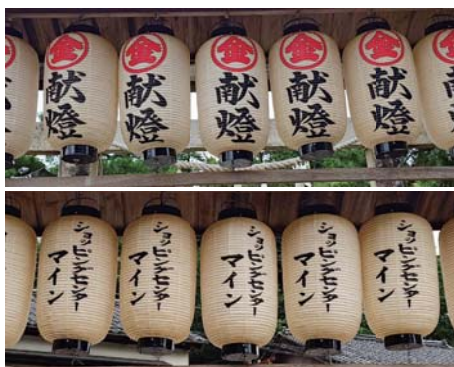 金
献燈
金
献燈
金
献燈
金
献燈
金
献燈
ショッピングセンター
マイン
ショッピングセンター
マイン
ショッピングセンター
マイン
ショッピングセンター
マイン
ショッピングセンター
マイン